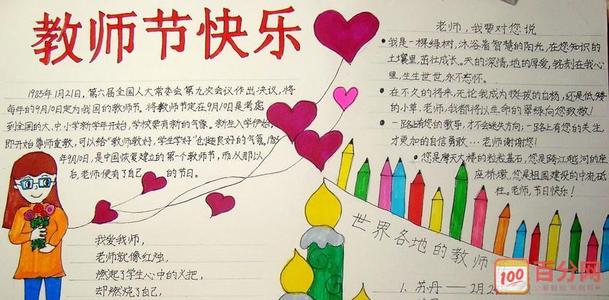 教师节快乐
1985年1月21日，第六届全国人大常委会第九次会议作出决议，将
每年的9月10日定为我国的教师节。将教师节定在9月10日是考虑
到全国的大、中小学新学年开始，学校要有新的气像。新生入学伊始，
即开始尊师重教，可以给"教师教好，学生学好"创造良好的气氛。
年9月10日，是中国恢复建立的第一个教师节，而从那以
后，老师便有了自己的节日。
我爱我师，
老师就像红烛，
燃起了学生心中的火把，
却燃烧了自己
老师，我要对您说
我是一棵绿树，沐浴着智慧的阳光，在您知识的
土壤里，茁壮成长。天的深情，地的厚爱，铭刻在我心
里，生生世世，永不忘怀。
在不久的将来，无论我成为挺拔的白杨，还是低矮
的小草，老师，我都将以生命的翠绿向您致敬！
一路上有您的教导，才不会迷失方向；一路上有您的关注，
才更加的自信勇敢……老师谢谢您！
您是摩天大楼的基石，您是跨江越河的座
座桥墩，您是祖国建设的中流砥
柱。老师，节日快乐！
世界各地的教师
1. 苏丹——2月2
100
百分网